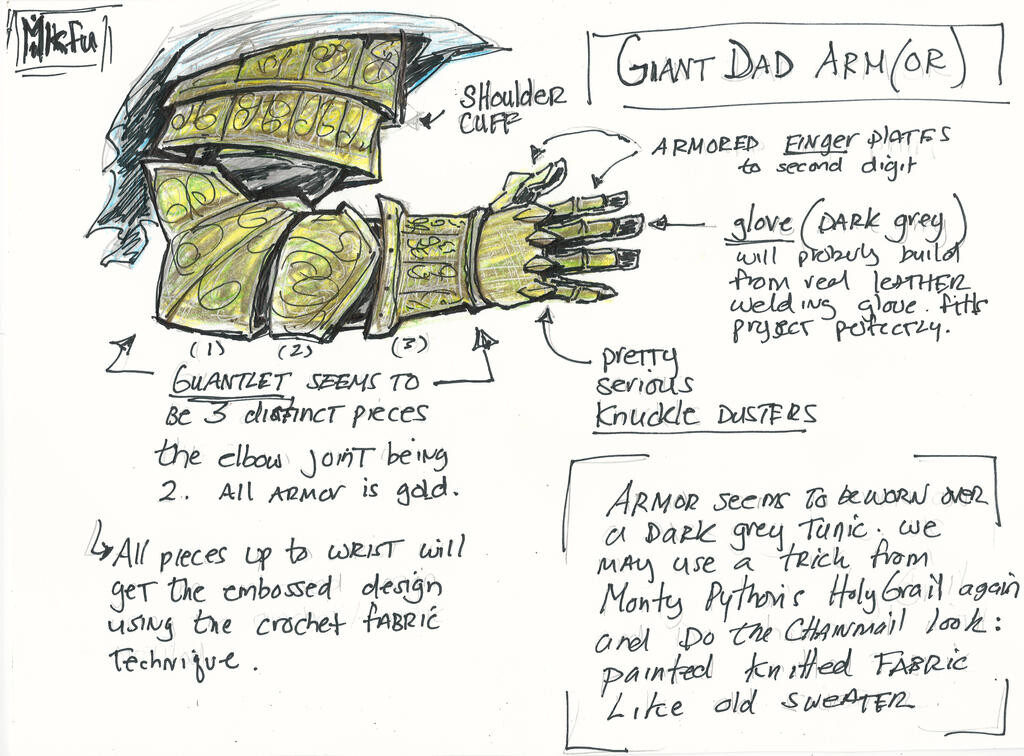 Mikfu
GIANT DAD ARM(OR)
SHoulder
CUFF
ARMORED FINger PlATES
to second digit
glove (DARK grey)
will probably build
from real LEATHER
welding glove. fits
project perfectly.
(1) (2) (3)
GUANTLET SEEMS TO
Be 3 distinct pieces
the elbow JOINT being
2. All ARMOR is gold.
pretty
serious
Knuckle DUSTERS
All pieces up to WRIST will
get the embossed design
using the crochet FABRIC
Technique.
ARMOR seems To be worn over
a DARK grey Tunic. we
MAY use a trick from
Monty Python's Holy Grail again
and Do the CHAINMAIL look:
painted knitted FABRIC
Like old SWEATER